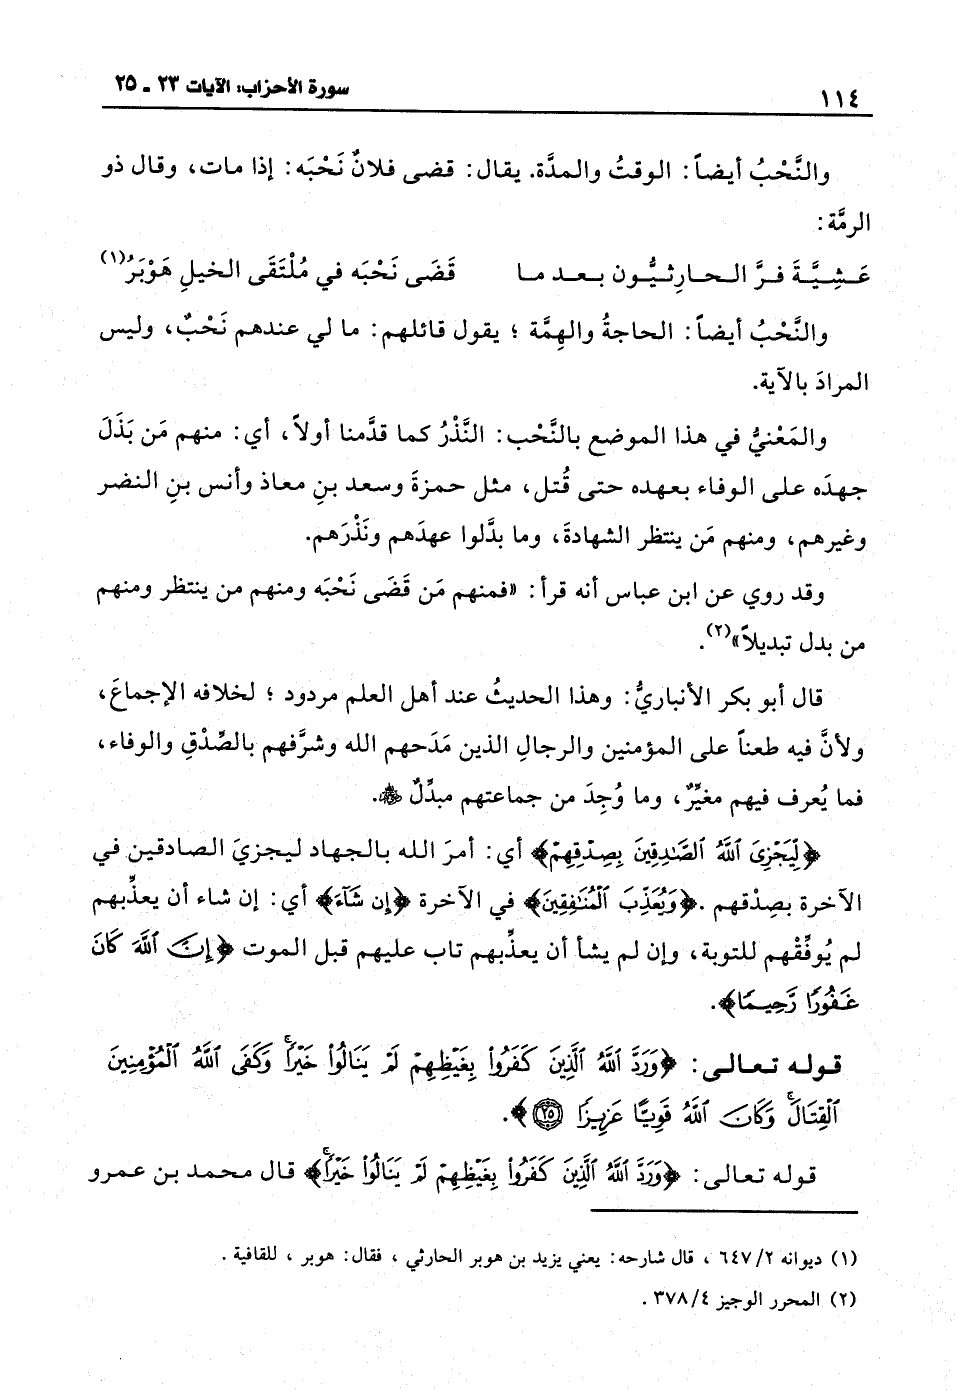 ١١٤
سورة الأحزاب: الآيات ٢٣ ـ ٢٥
والنَّحْبُ أيضاً: الوقتُ والمدَّة. يقال: قضى فلانٌ نَحْبَه: إذا مات، وقال ذو
الرمَّة:
عَشِيَّةَ فرَّ الحارِثيُّون بعد ما قَضَى نَحْبَه في مُلْتَقَى الخيلِ هَوْبَرُ(١)
والنَّحْبُ أيضاً: الحاجةُ والهِمَّة ؛ يقول قائلهم: ما لي عندهم نَحْبٌ، وليس
المرادَ بالآية.
والمَعْنيُّ في هذا الموضع بالنَّحْب: النَّذْرُ كما قدَّمنا أولاً، أي: منهم مَن بَذَلَ
جهدَه على الوفاء بعهده حتى قُتل، مثل حمزةَ وسعد بنِ معاذ وأنس بنِ النضر
وغيرهم، ومنهم مَن ينتظر الشهادةَ، وما بدَّلوا عهدَهم ونَذْرَهم.
وقد روي عن ابن عباس أنه قرأ: «فمنهم مَن قَضَى نَحْبَه ومنهم من ينتظر ومنهم
من بدل تبديلاً»(٢).
قال أبو بكر الأنباريُّ: وهذا الحديثُ عند أهل العلم مردود ؛ لخلافه الإجماعَ،
ولأنَّ فيه طعناً على المؤمنين والرجالِ الذين مَدَحهم الله وشرَّفهم بالصِّدْقِ والوفاء،
فما يُعرف فيهم مغيِّرٌ، وما وُجِدَ من جماعتهم مبدِّلٌ ﷺ.
﴿لِّيَجْزِىَ ٱللَّهُ ٱلصَّـٰدِقِينَ بِصِدْقِهِمْ﴾ أي: أمرَ الله بالجهاد ليجزيَ الصادقين في
الآخرة بصِدْقهم .﴿وَيُعَذِّبَ ٱلْمُنَـٰفِقِينَ﴾ في الآخرة ﴿إِن شَآءَ﴾ أي: إن شاء أن يعذِّبهم
لم يُوفِّقْهم للتوبة، وإن لم يشأ أن يعذِّبهم تاب عليهم قبل الموت ﴿إِنَّ ٱللَّهَ كَانَ
غَفُورًا رَّحِيمًا﴾.
قوله تعالى: ﴿وَرَدَّ ٱللَّهُ ٱلَّذِينَ كَفَرُواْ بِغَيْظِهِمْ لَمْ يَنَالُواْ خَيْرًا ۚ وَكَفَى ٱللَّهُ ٱلْمُؤْمِنِينَ
ٱلْقِتَالَ ۚ وَكَانَ ٱللَّهُ قَوِيًّا عَزِيزًا ۝٢٥﴾.
قوله تعالى: ﴿وَرَدَّ ٱللَّهُ ٱلَّذِينَ كَفَرُواْ بِغَيْظِهِمْ لَمْ يَنَالُواْ خَيْرًا ۚ﴾ قال محمد بن عمرو
(١) ديوانه ٢/ ٦٤٧ ، قال شارحه: يعني يزيد بن هوبر الحارثي ، فقال: هوبر ، للقافية .
(٢) المحرر الوجيز ٤/ ٣٧٨ .